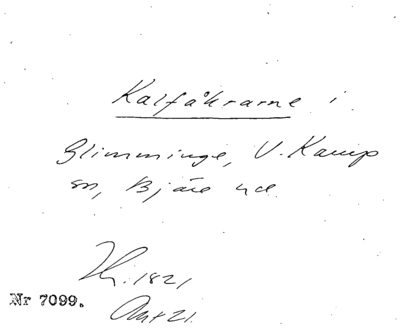 Kalfåkrarne i
Glimminge, V. Karup
sn, Bjäre hd
Th. 1821
Nr 7099.
Akt 21.